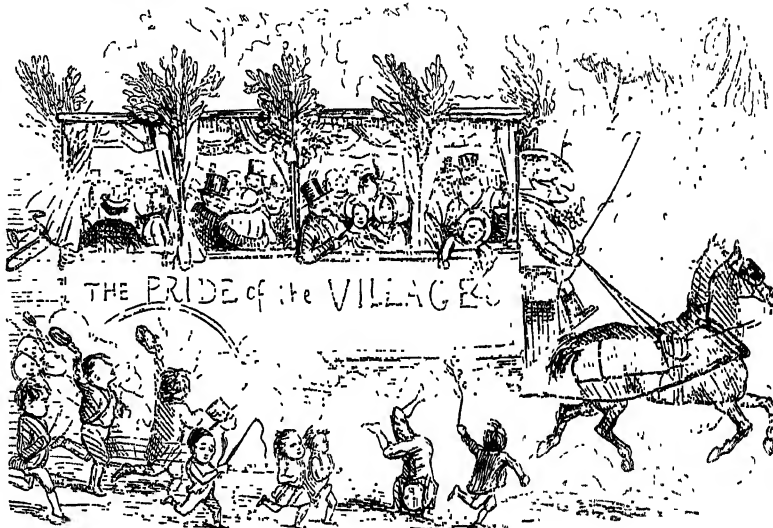 THE PRIDE of the VILLAGE